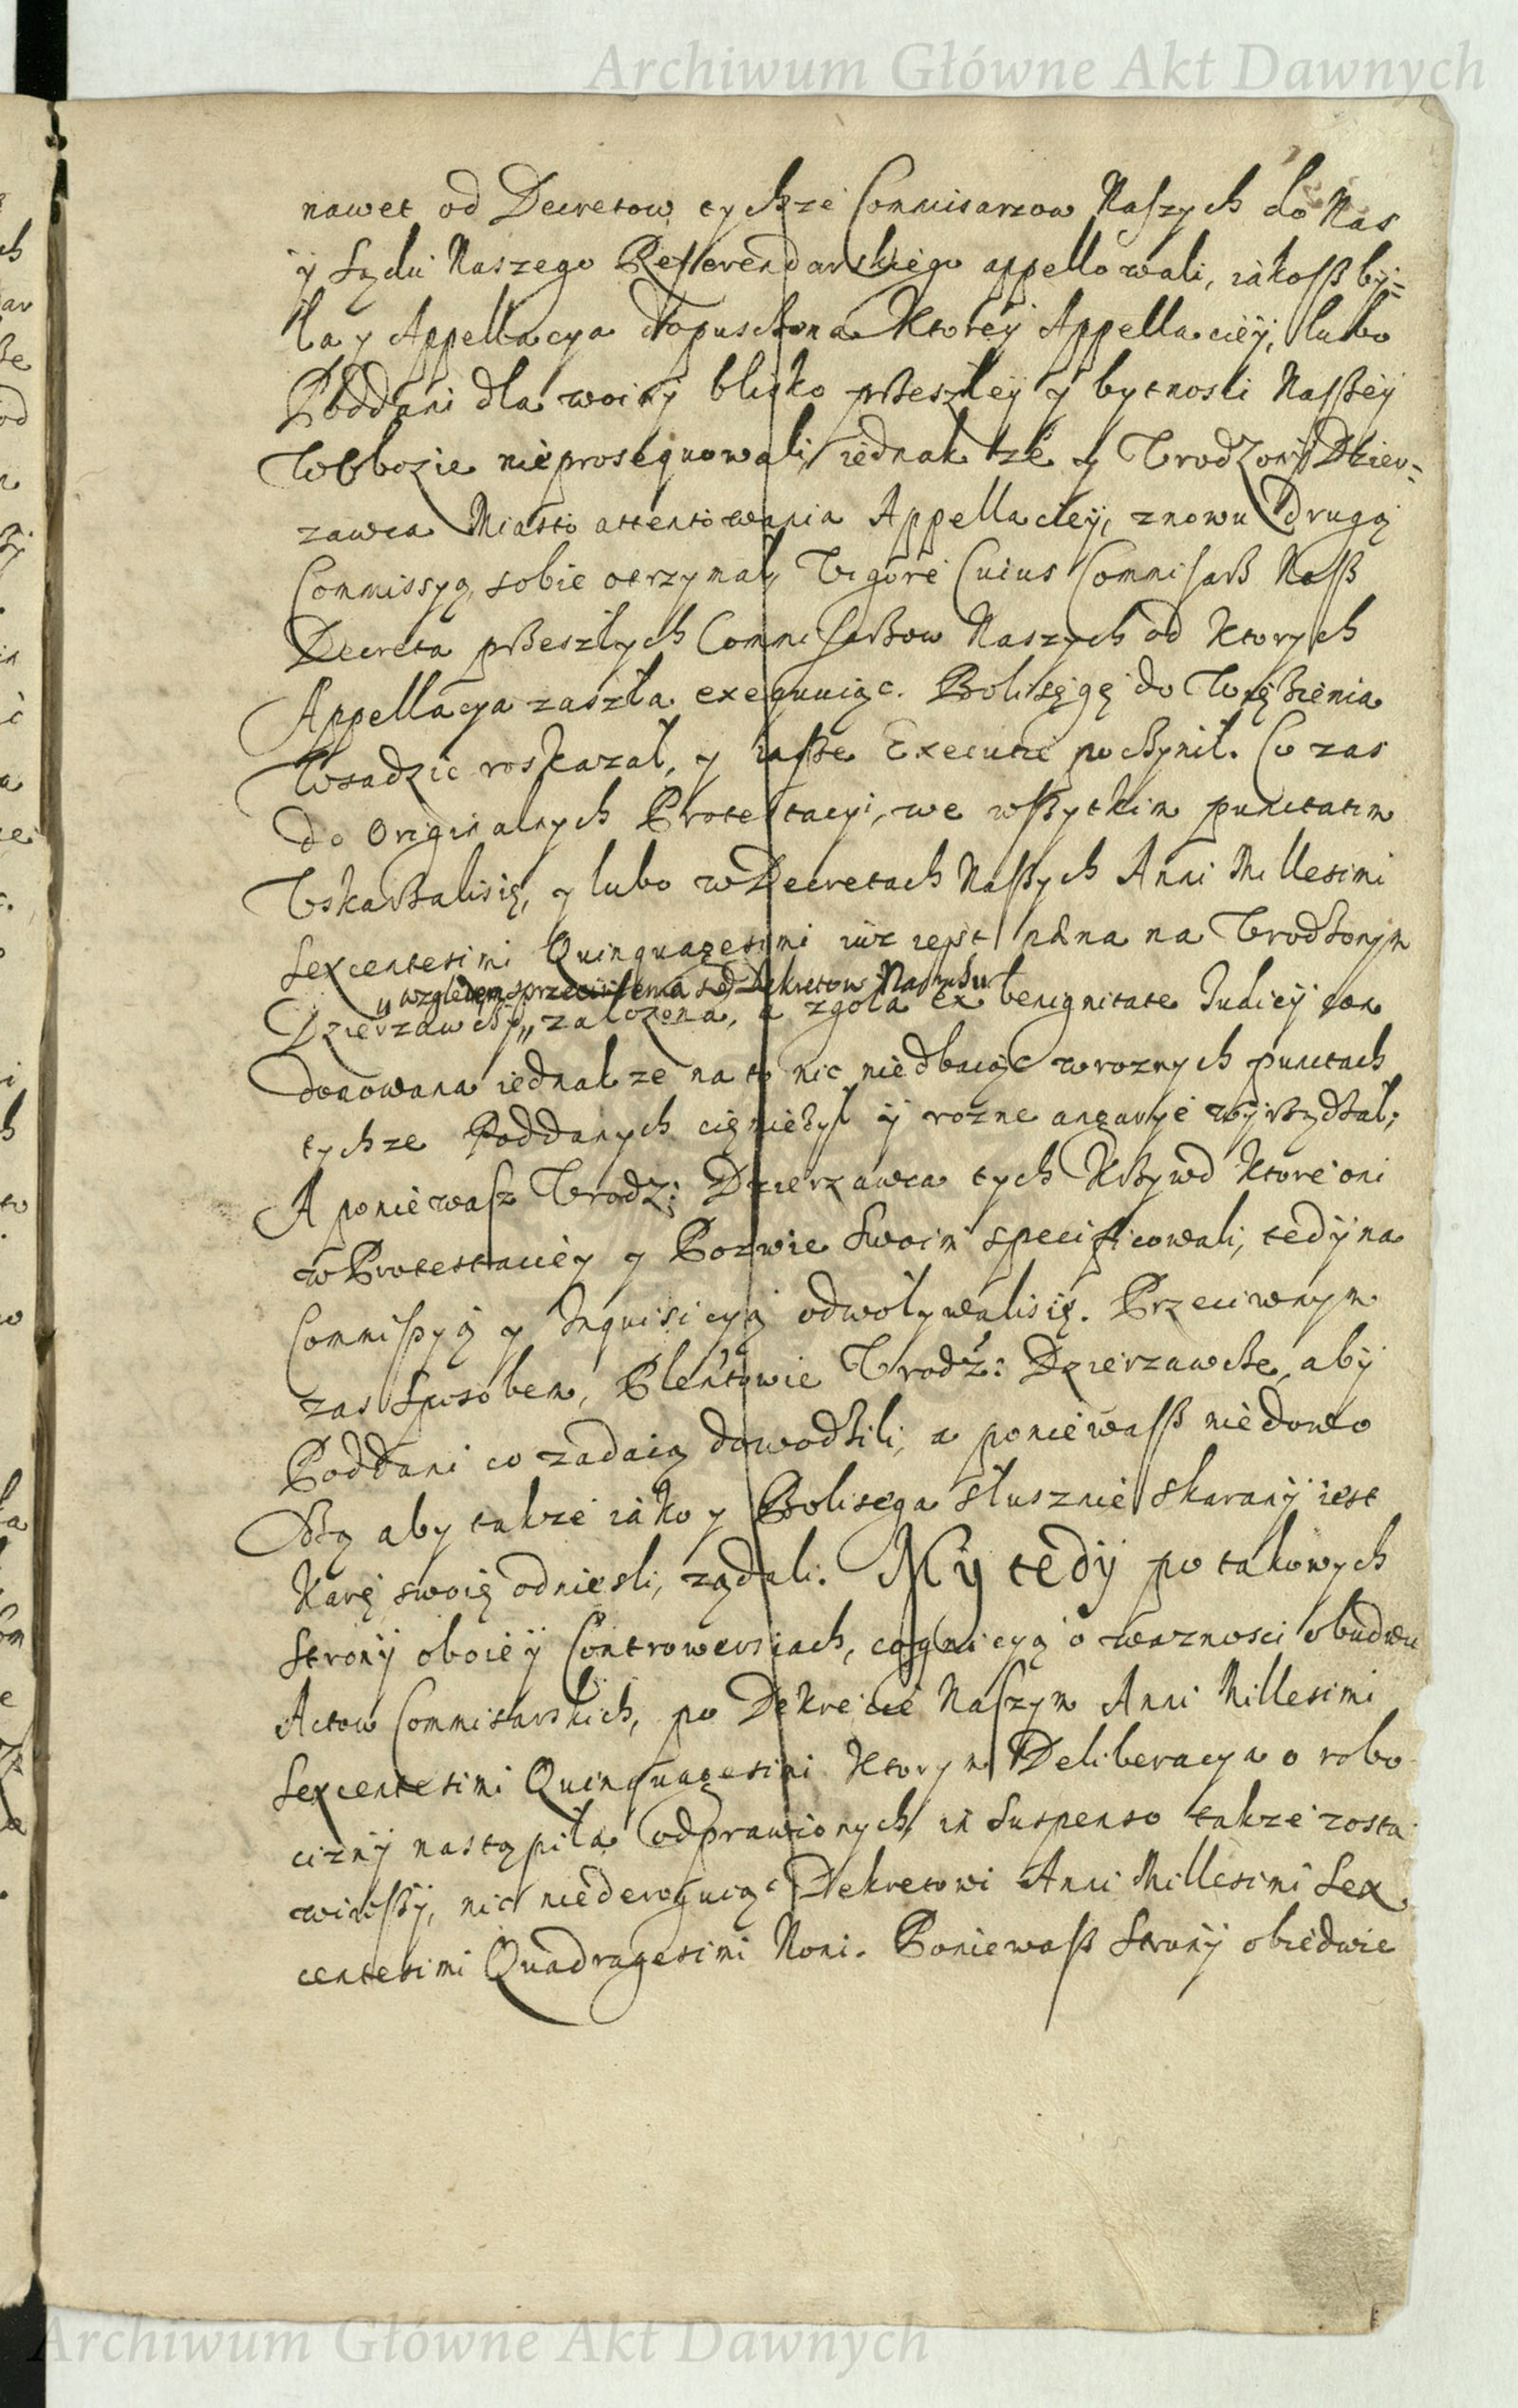 Archiwum Główne Akt Dawnych
nawet od Decretow tychże Commisarzow Naszych do Nas
y Sądu Naszego Referendarskiego appellowali, iakoß by=
ła y Appellacya dopuszczona Ktorey Appellaciey, lubo
Poddani dla woiny blisko przeszłey y bytnosci Naßey
W Obozie nieprosequowali, iednakże y Urodzony Dzier=
zawca Miasto attentowania Appellaciey, znowu drugą
Commissyą sobie otrzymał, Vigore Cuius Commisarß Naß
Decreta przeszłych Commisarzow Naszych od Ktorych
Appellacya zaszła exequuiąc. Bolisęgę do Więzienia
Wsadzic roskazał, y insze Executie poczynił. Co zas
do Originalnych Protestacyi, we wszytkim punctatim
Uskarzalisię, y lubo w Decretach Naszych Anni Millesimi
Sexcentesimi Quinquagesimi iuz iest pana na Urodzonym
„względem sprzeciwienia się Dekretow Naszemu
Dzierzawczy„ załozona, a zgoła ex benignitate Iudicij con
donowana iednakze na to nic niedbaiąc w roznych punctach
tychze Poddanych ciązył y rozne angarye wyrządzał;
A poniewasz Urodz: Dzierzawca tych Krzywd Ktore oni
w Protestaciey y Pozwie Swoim specificowali, tedy na
Commissyą y Inquisicyą odwoływalisię. Przeciwnym
zas Sposobem, Plentowie Urodz: Dzierzawcze, aby
Poddani co zadaią dowodzili, a poniewaß niedowo
dzą aby takze iako y Bolisega słusznie skarany iest
Karę swoię odniesli, ządali. My tedy po takowych
Strony oboiey Controwersiach, cognicyą o waznosci obudwu
Actow Commisarskich, po Dekrecie Naszym Anni Millesimi
Sexcentesimi Quinquagesimi Ktorym Deliberacya o robo
cizny nastąpiła odprawionych, in Suspenso takze zosta
wiwszy, nic niederoguiąc Dekretowi Anni Millesimi Sex
centesimi Quadragesimi Noni. Poniewaß Strony obiedwie
Archiwum Główne Akt Dawnych